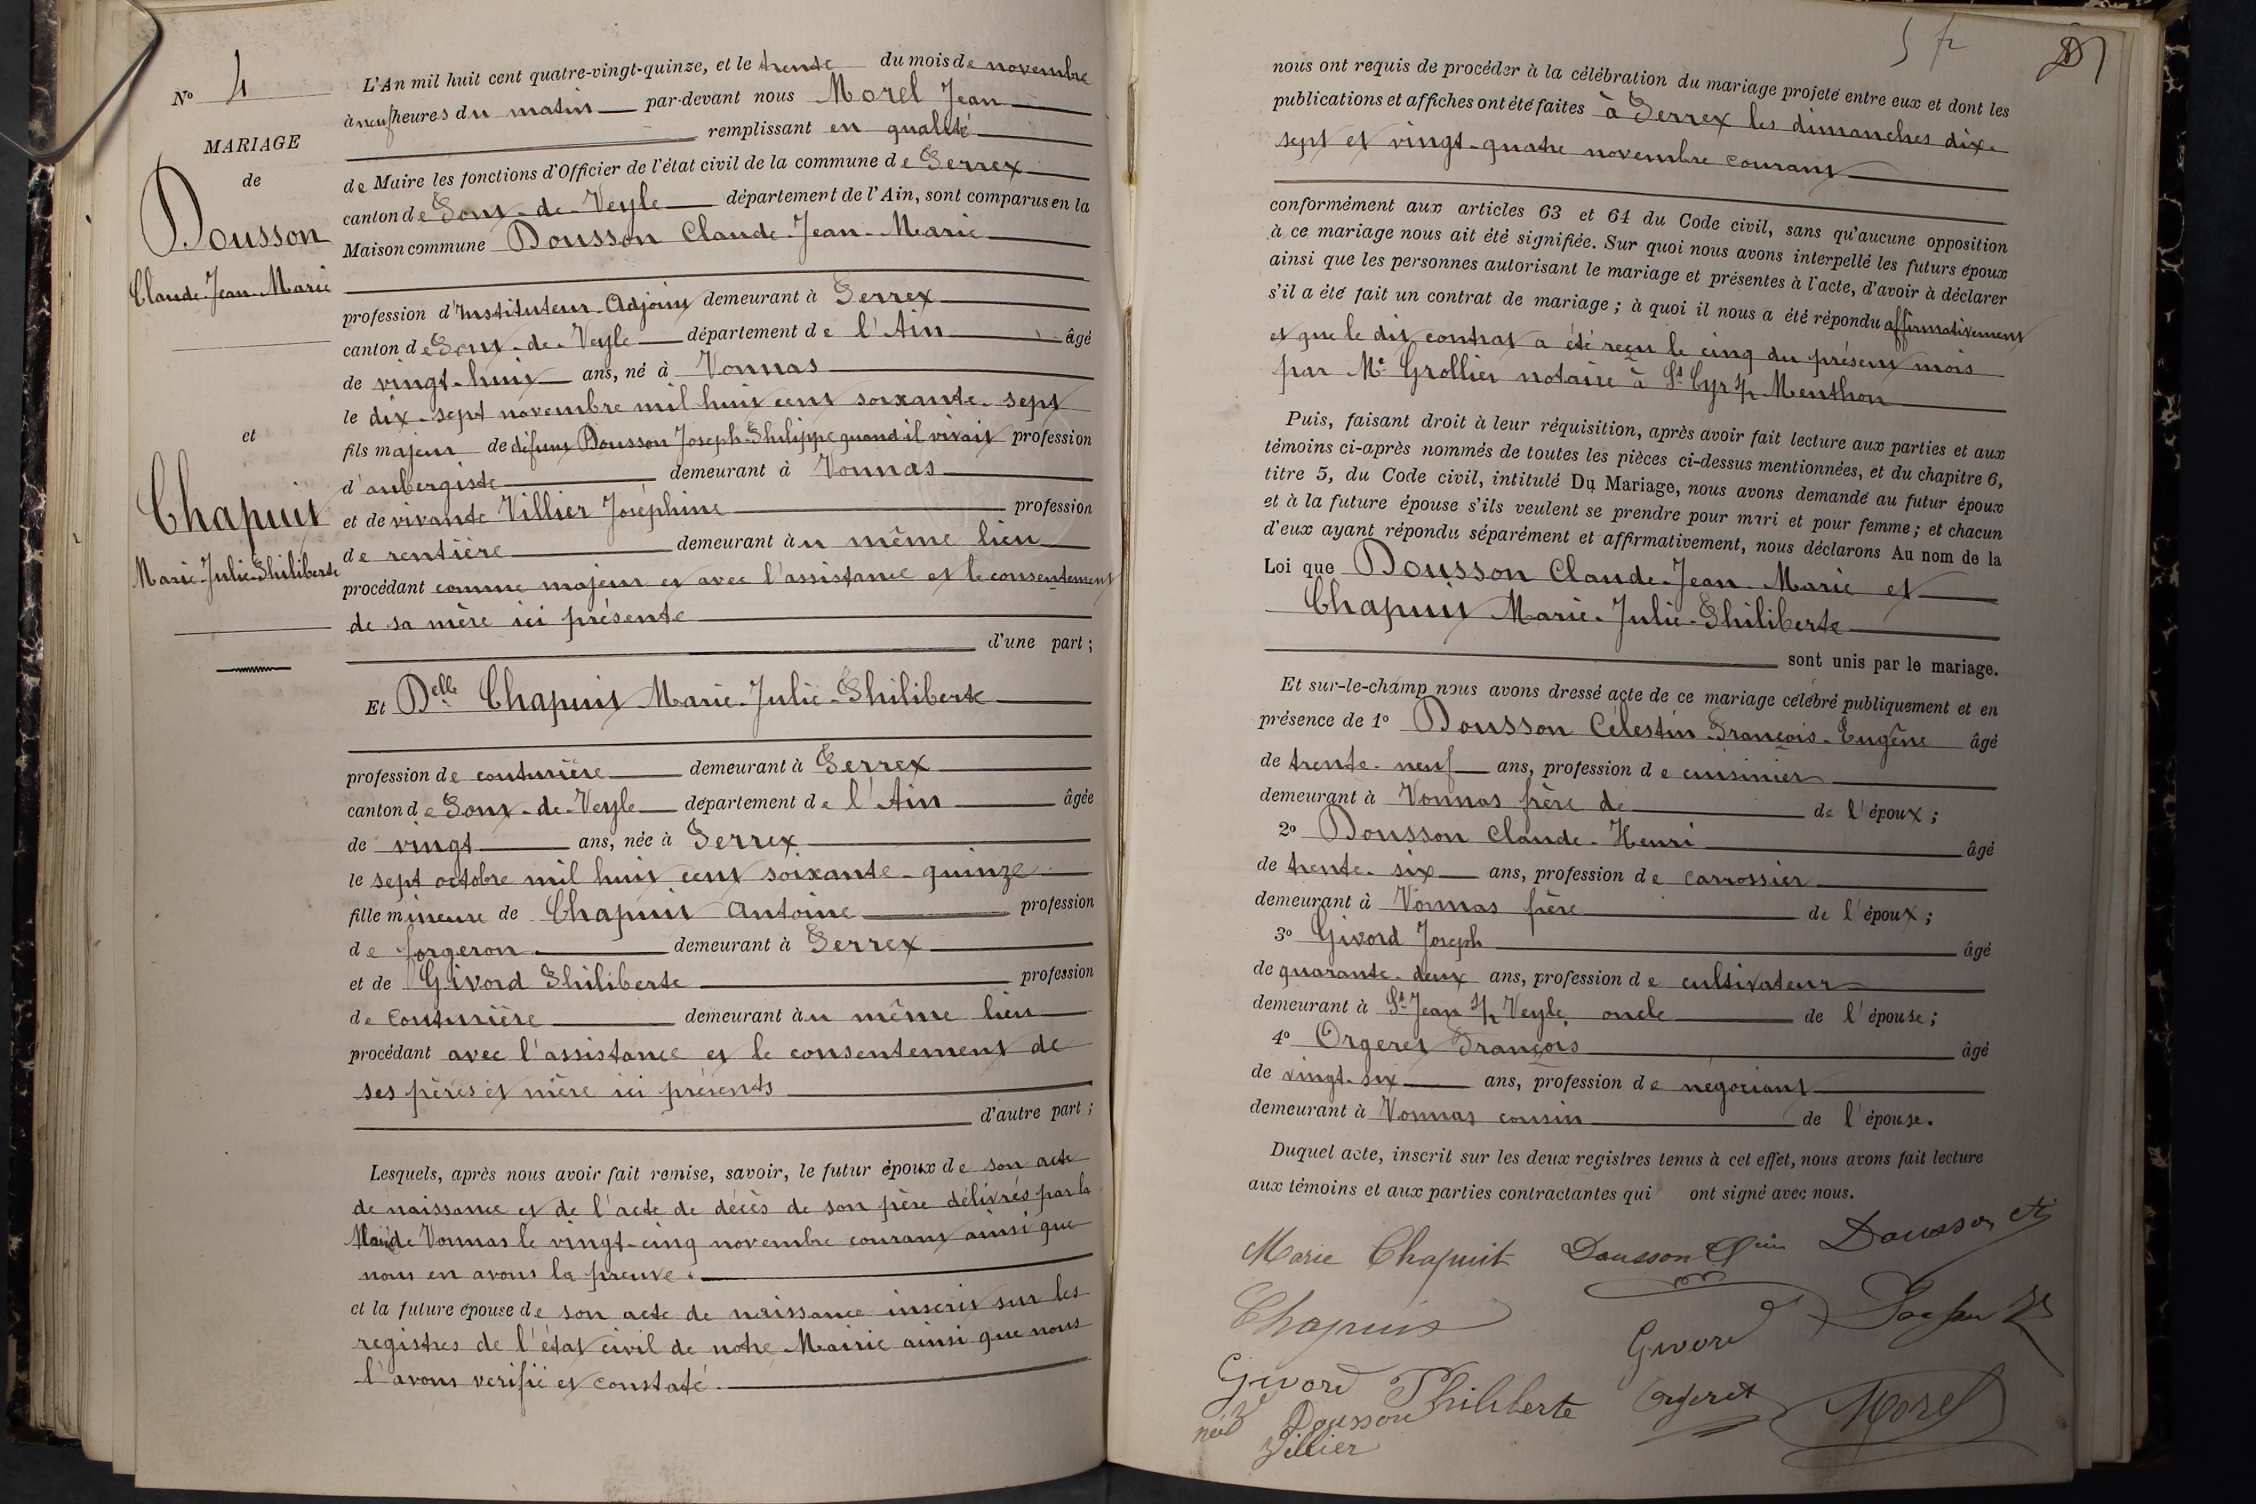 N° 4
MARIAGE
de
Dousson
Claude-Jean-Marie
et
Chapuit
Marie-Julie-Philiberte
L'An mil huit cent quatre-vingt-quinze, et le trente du mois de novembre
à neuf heures du matin par-devant nous Morel Jean
remplissant en qualité
de Maire les fonctions d'Officier de l'état civil de la commune de Perrex
canton de Pont-de-Veyle département de l'Ain, sont comparus en la
Maison commune Dousson Claude-Jean-Marie
profession d'Instituteur-Adjoint demeurant à Perrex
canton de Pont-de-Veyle département de l'Ain âgé
de vingt-huit ans, né à Vonnas
le dix-sept novembre mil huit cent soixante-sept
fils majeur de défunt Dousson Joseph-Philippe quand il vivait profession
d'aubergiste demeurant à Vonnas
et de vivante Villier Joséphine profession
de rentière demeurant àu même lieu
procédant comme majeur et avec l'assistance et le consentement
de sa mère ici présente
d'une part;
Et Delle Chapuit Marie-Julie-Philiberte
profession de couturière demeurant à Perrex
canton de Pont-de-Veyle département de l'Ain âgée
de vingt ans, née à Perrex
le sept octobre mil huit cent soixante-quinze
fille mineure de Chapuit Antoine profession
de forgeron demeurant à Perrex
et de Givord Philiberte profession
de couturière demeurant àu même lieu
procédant avec l'assistance et le consentement de
ses pères et mère ici présents
d'autre part;
Lesquels, après nous avoir fait remise, savoir, le futur époux de son acte
de naissance et de l'acte de décès de son père délivrés par la
Mairie de Vonnas le vingt-cinq novembre courant ainsi que
nous en avons la preuve.
et la future épouse de son acte de naissance inscrit sur les
registres de l'état civil de notre Mairie ainsi que nous
l'avons verifié et constaté.
5 fr
nous ont requis de procéder à la célébration du mariage projeté entre eux et dont les
publications et affiches ont été faites à Perrex les dimanches dix-
sept et vingt-quatre novembre courant
conformément aux articles 63 et 64 du Code civil, sans qu'aucune opposition
à ce mariage nous ait été signifiée. Sur quoi nous avons interpellé les futurs époux
ainsi que les personnes autorisant le mariage et présentes à l'acte, d'avoir à déclarer
s'il a été fait un contrat de mariage; à quoi il nous a été répondu affirmativement
et que le dit contrat a été reçu le cinq du présent mois
par Me Grollier notaire à St Cyr s/ Menthon
Puis, faisant droit à leur réquisition, après avoir fait lecture aux parties et aux
témoins ci-après nommés de toutes les pièces ci-dessus mentionnées, et du chapitre 6,
titre 5, du Code civil, intitulé Du Mariage, nous avons demandé au futur époux
et à la future épouse s'ils veulent se prendre pour mari et pour femme; et chacun
d'eux ayant répondu séparément et affirmativement, nous déclarons Au nom de la
Loi que Dousson Claude-Jean-Marie et
Chapuit Marie-Julie-Philiberte
sont unis par le mariage.
Et sur-le-champ nous avons dressé acte de ce mariage célébré publiquement et en
présence de 1° Dousson Célestin-François-Eugêne âgé
de trente-neuf ans, profession de cuisinier
demeurant à Vonnas frère de de l'époux;
2° Dousson Claude-Henri âgé
de trente-six ans, profession de carrossier
demeurant à Vonnas frère de l'époux;
3° Givord Joseph âgé
de quarante-deux ans, profession de cultivateur
demeurant à St-Jean s/ Veyle oncle de l'épouse;
4° Orgeret François âgé
de vingt-six ans, profession de négociant
demeurant à Vonnas cousin de l'épouse.
Duquel acte, inscrit sur les deux registres tenus à cet effet, nous avons fait lecture
aux témoins et aux parties contractantes qui ont signé avec nous.
Marie Chapuit Dousson Dousson
Chapuis
Givord
Givord Philiberte Orgeret Morel
née Dousson
Villier